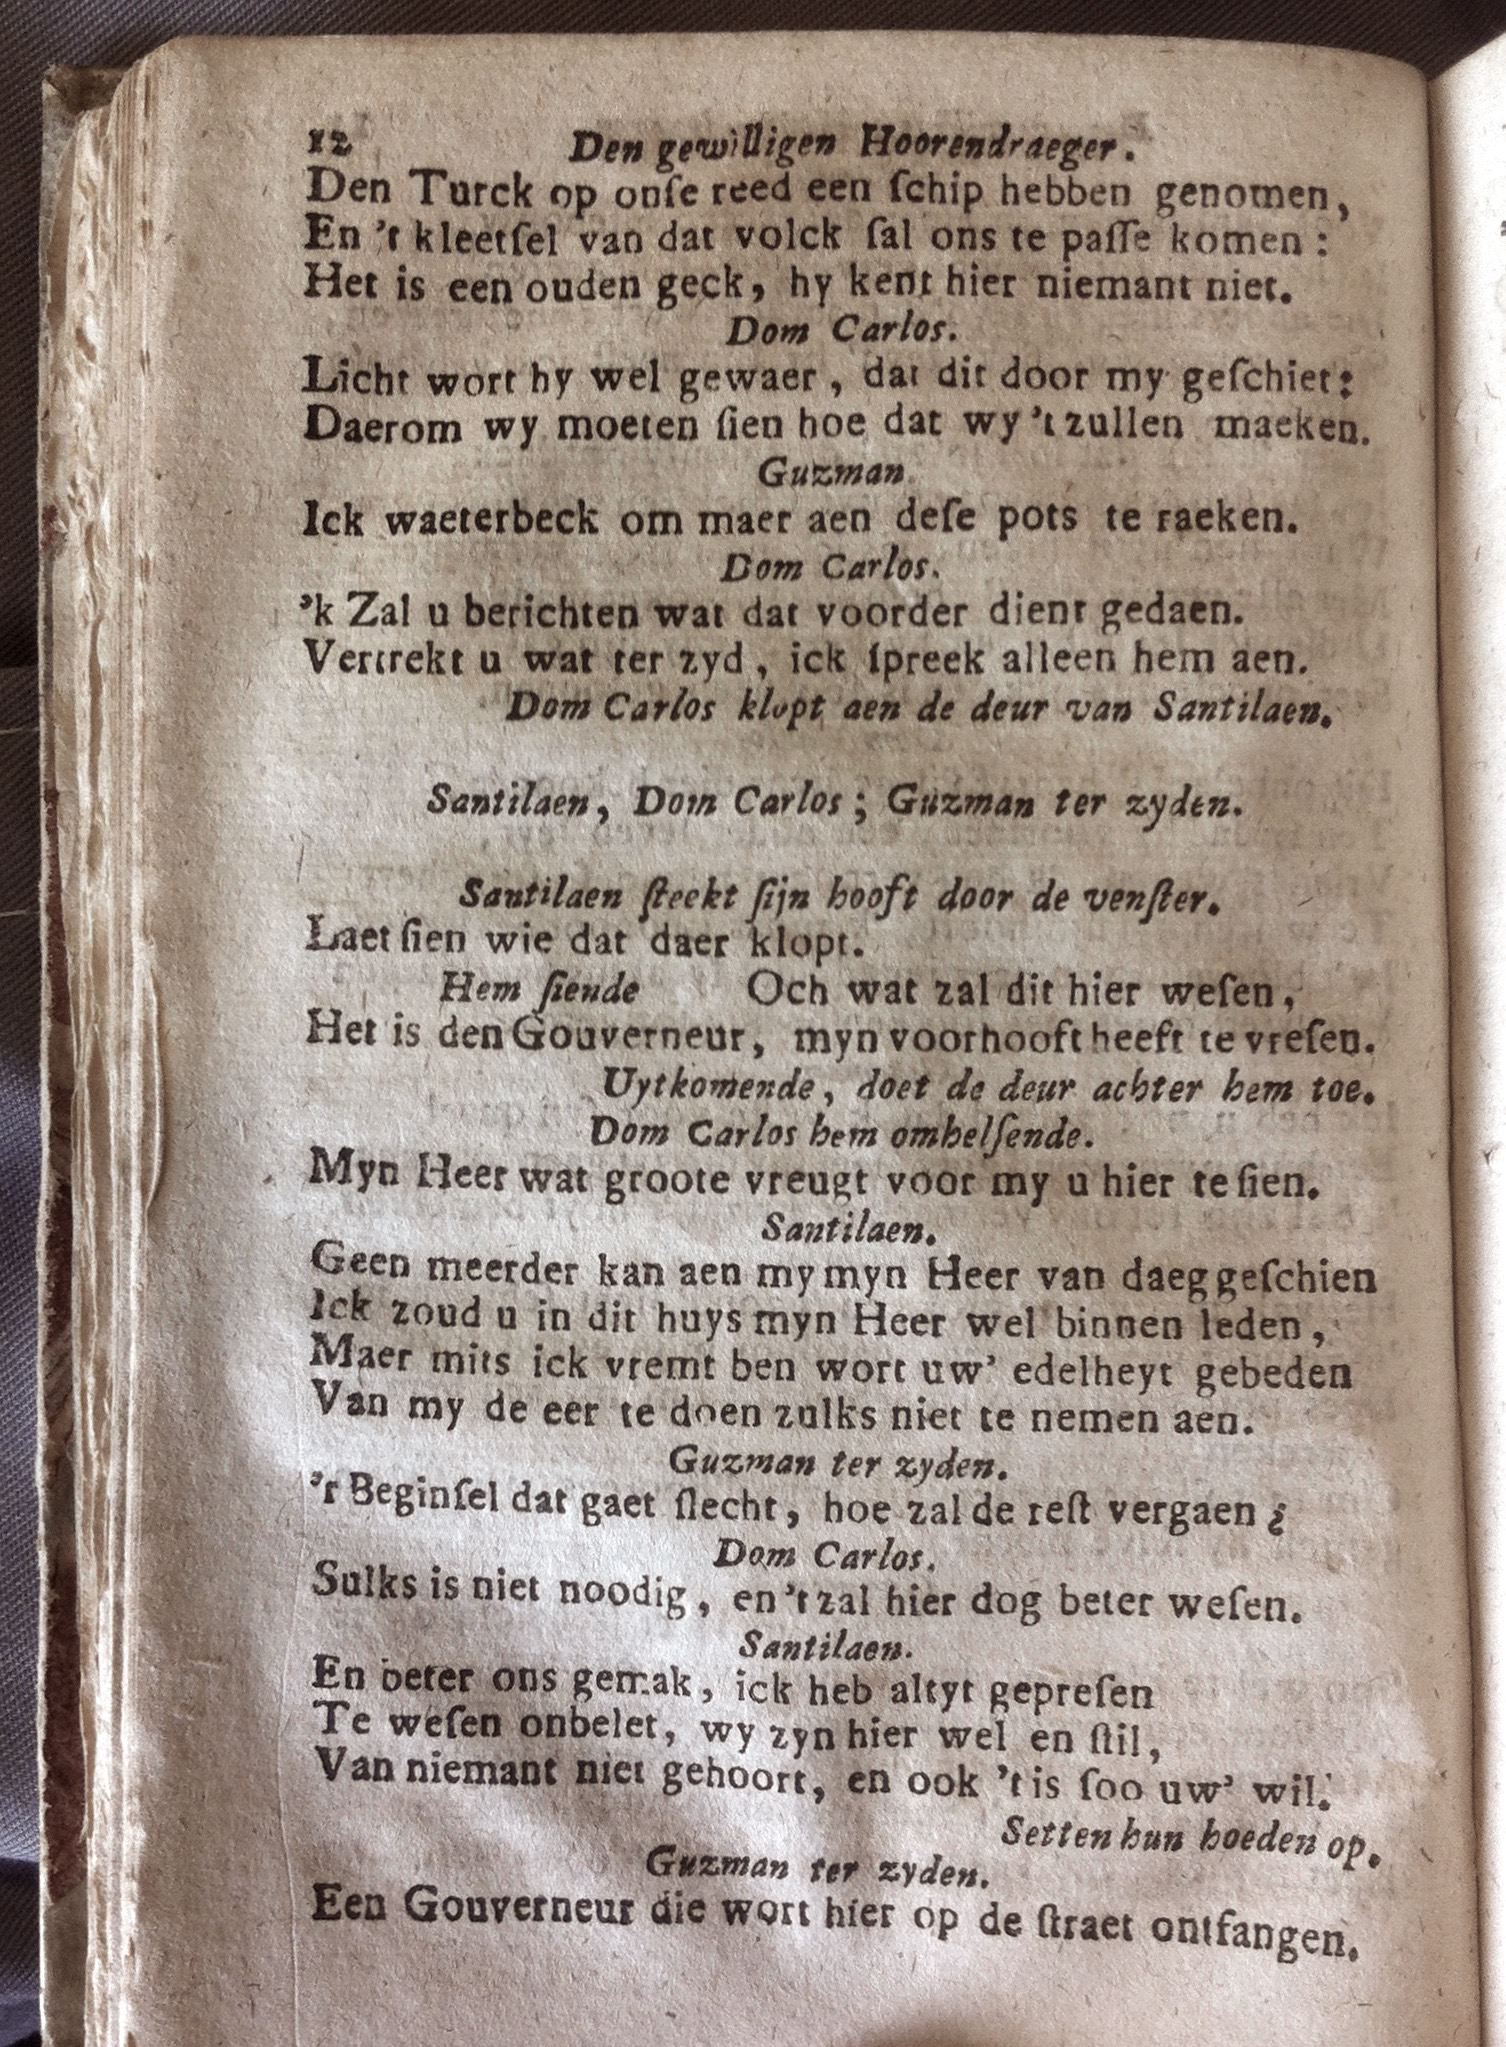 12 Den gewilligen Hoorendraeger.
Den Turck op onſe reed een ſchip hebben genomen,
En 't kleetſel van dat volck ſal ons te paſſe komen:
Het is een ouden geck, hy kent hier niemant niet.
Dom Carlos.
Licht wort hy wel gewaer, dat dit door my geſchiet:
Daerom wy moeten ſien hoe dat wy 't zullen maeken.
Guzman.
Ick waeterbeck om maer aen deſe pots te raeken.
Dom Carlos.
'k Zal u berichten wat dat voorder dient gedaen.
Vertrekt u wat ter zyd, ick ſpreek alleen hem aen.
Dom Carlos klopt aen de deur van Santilaen.
Santilaen, Dom Carlos; Guzman ter zyden.
Santilaen ſteekt ſijn hooft door de venſter.
Laet ſien wie dat daer klopt.
Hem ſiende Och wat zal dit hier weſen,
Het is den Gouverneur, myn voorhooft heeft te vreſen.
Uytkomende, doet de deur achter hem toe.
Dom Carlos hem omhelſende.
Myn Heer wat groote vreugt voor my u hier te ſien.
Santilaen.
Geen meerder kan aen my myn Heer van daeg geſchien
Ick zoud u in dit huys myn Heer wel binnen leden,
Maer mits ick vremt ben wort uw' edelheyt gebeden
Van my de eer te doen zulks niet te nemen aen.
Guzman ter zyden.
't Beginſel dat gaet ſlecht, hoe zal de reſt vergaen ¿
Dom Carlos.
Sulks is niet noodig, en 't zal hier dog beter weſen.
Santilaen.
En beter ons gemak, ick heb altyt gepreſen
Te weſen onbelet, wy zyn hier wel en ſtil,
Van niemant niet gehoort, en ook 't is ſoo uw' wil.
Setten hun hoeden op.
Guzman ter zyden.
Een Gouverneur die wort hier op de ſtraet ontfangen.